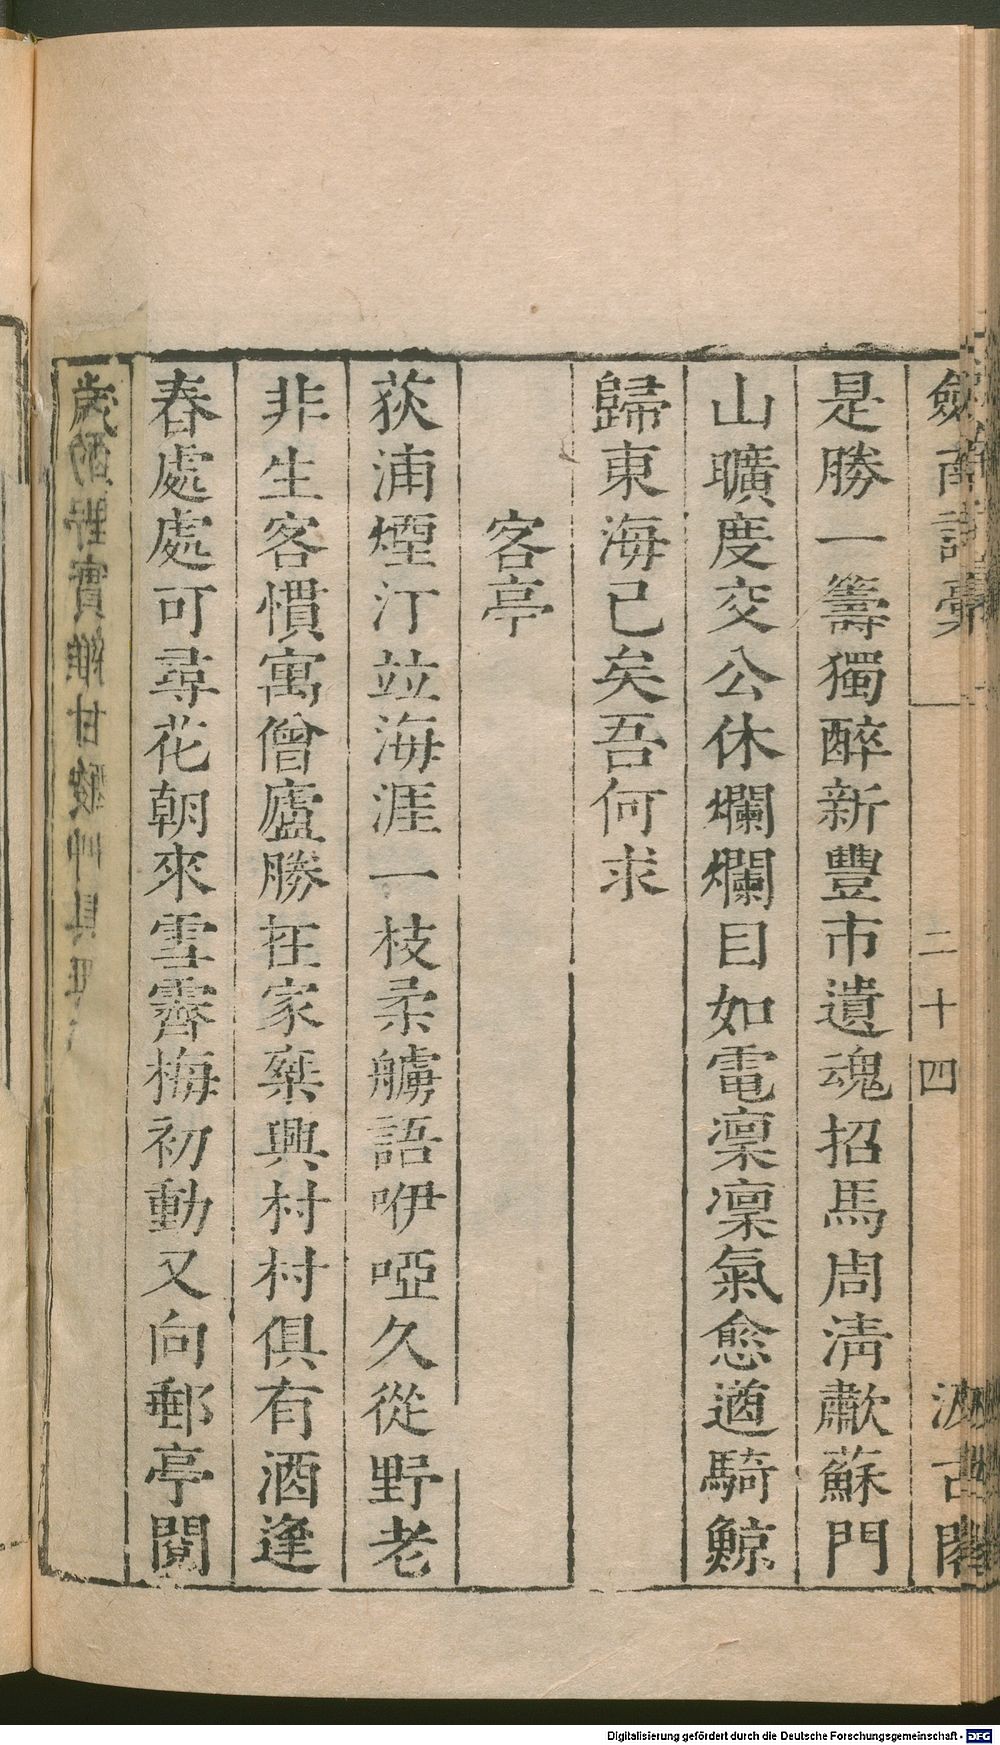 劍南詩稾
二十四
汲古閣
是勝一籌獨醉新豐市遺魂招馬周清歗蘇門
山曠度交公休爛爛目如電凜凜氣愈遒騎鯨
歸東海已矣吾何求
客亭
荻浦煙汀竝海涯一枝柔艣語咿啞久從野老
非生客慣寓僧廬勝在家桑興村村俱有酒逢
春處處可尋花朝來雪霽梅初動又向郵亭閱
歲
Digitalisierung gefördert durch die Deutsche Forschungsgemeinschaft - DFG